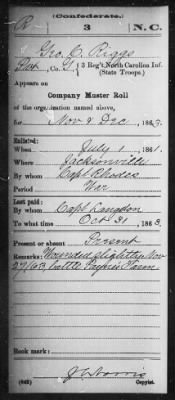 (Confederate.)
R 3 N.C.
Geo. C. Riggs
Co. 3 Reg't, North Carolina Inf.
(State Troops.)
Appears on
Company Muster Roll
of the organization named above,
for Nov & Dec, 186
Enlisted:
When July 1, 1861.
Where Jacksonville
By whom Capt Rhodes
Period War
Last paid:
By whom Capt Langdon
To what time Oct 31, 1863.
Present or absent Present
Remarks: Wounded slightly Nov
27/63 battle Paynes Farm
Book mark:
(642) Copyist.